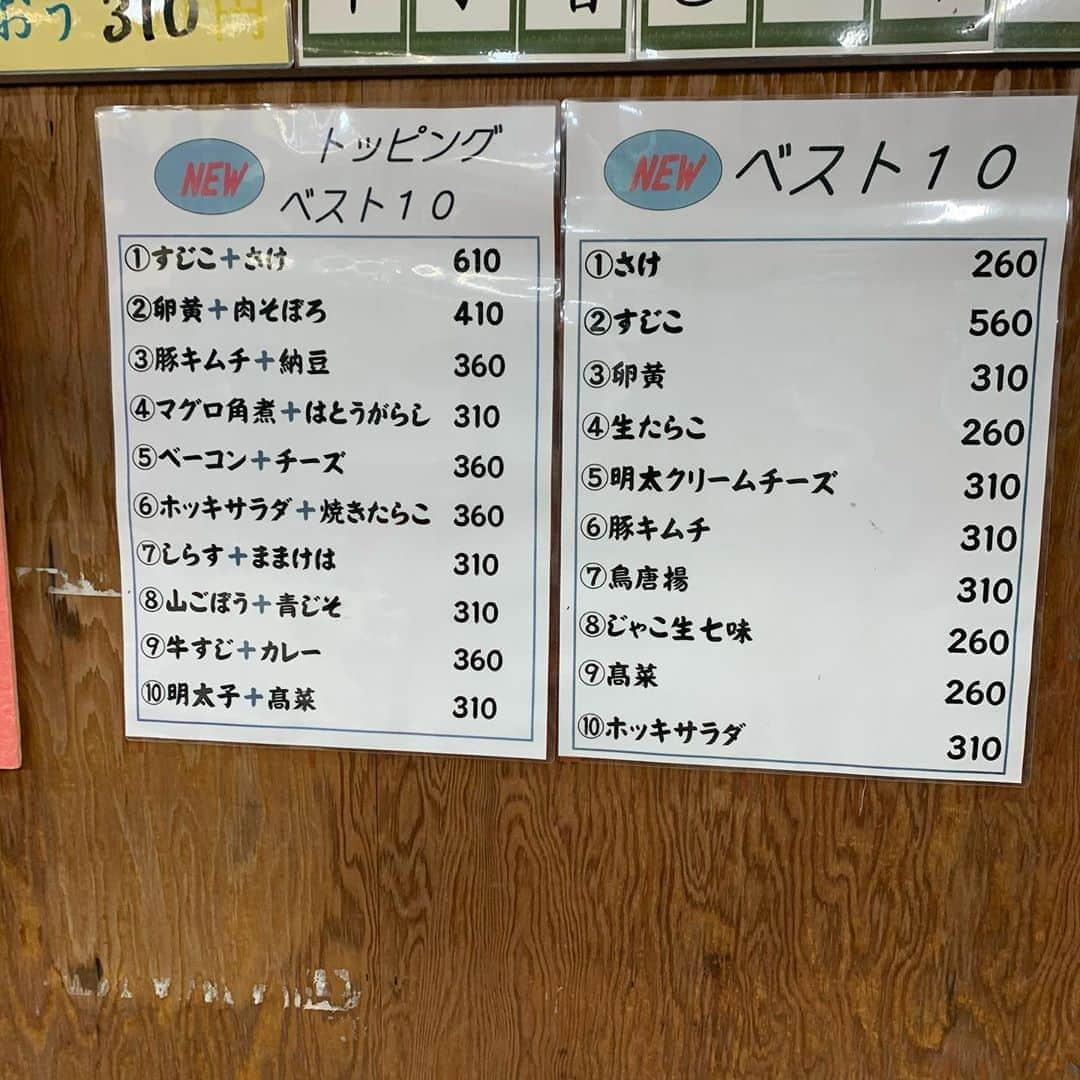 おう 310円
NEW
トッピング
ベスト10
①すじこ+さけ 610
②卵黄+肉そぼろ 410
③豚キムチ+納豆 360
④マグロ角煮+はとうがらし 310
⑤ベーコン+チーズ 360
⑥ホッキサラダ+焼きたらこ 360
⑦しらす+ままけは 310
⑧山ごぼう+青じそ 310
⑨牛すじ+カレー 360
⑩明太子+髙菜 310
NEW
ベスト10
①さけ 260
②すじこ 560
③卵黄 310
④生たらこ 260
⑤明太クリームチーズ 310
⑥豚キムチ 310
⑦鳥唐揚 310
⑧じゃこ生七味 260
⑨髙菜 260
⑩ホッキサラダ 310